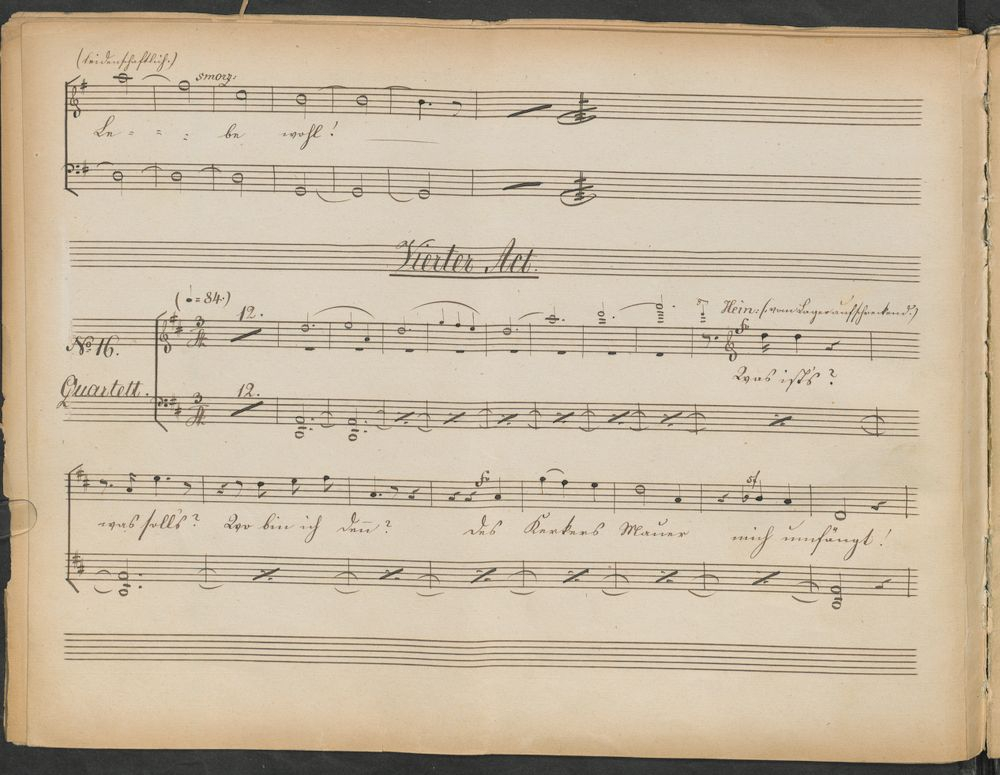 (Leidenschaftlich.)
smorz:
Le - - - be wohl!
Vierter Act.
(♩. = 84.)
12.
Hein: (vom Lager aufschreckend.)
No. 16.
3/4
Was ist's?
Quartett.
12.
3/4
sf
was soll's? Wo bin ich denn? des Kerkers Mauer mich umfängt!